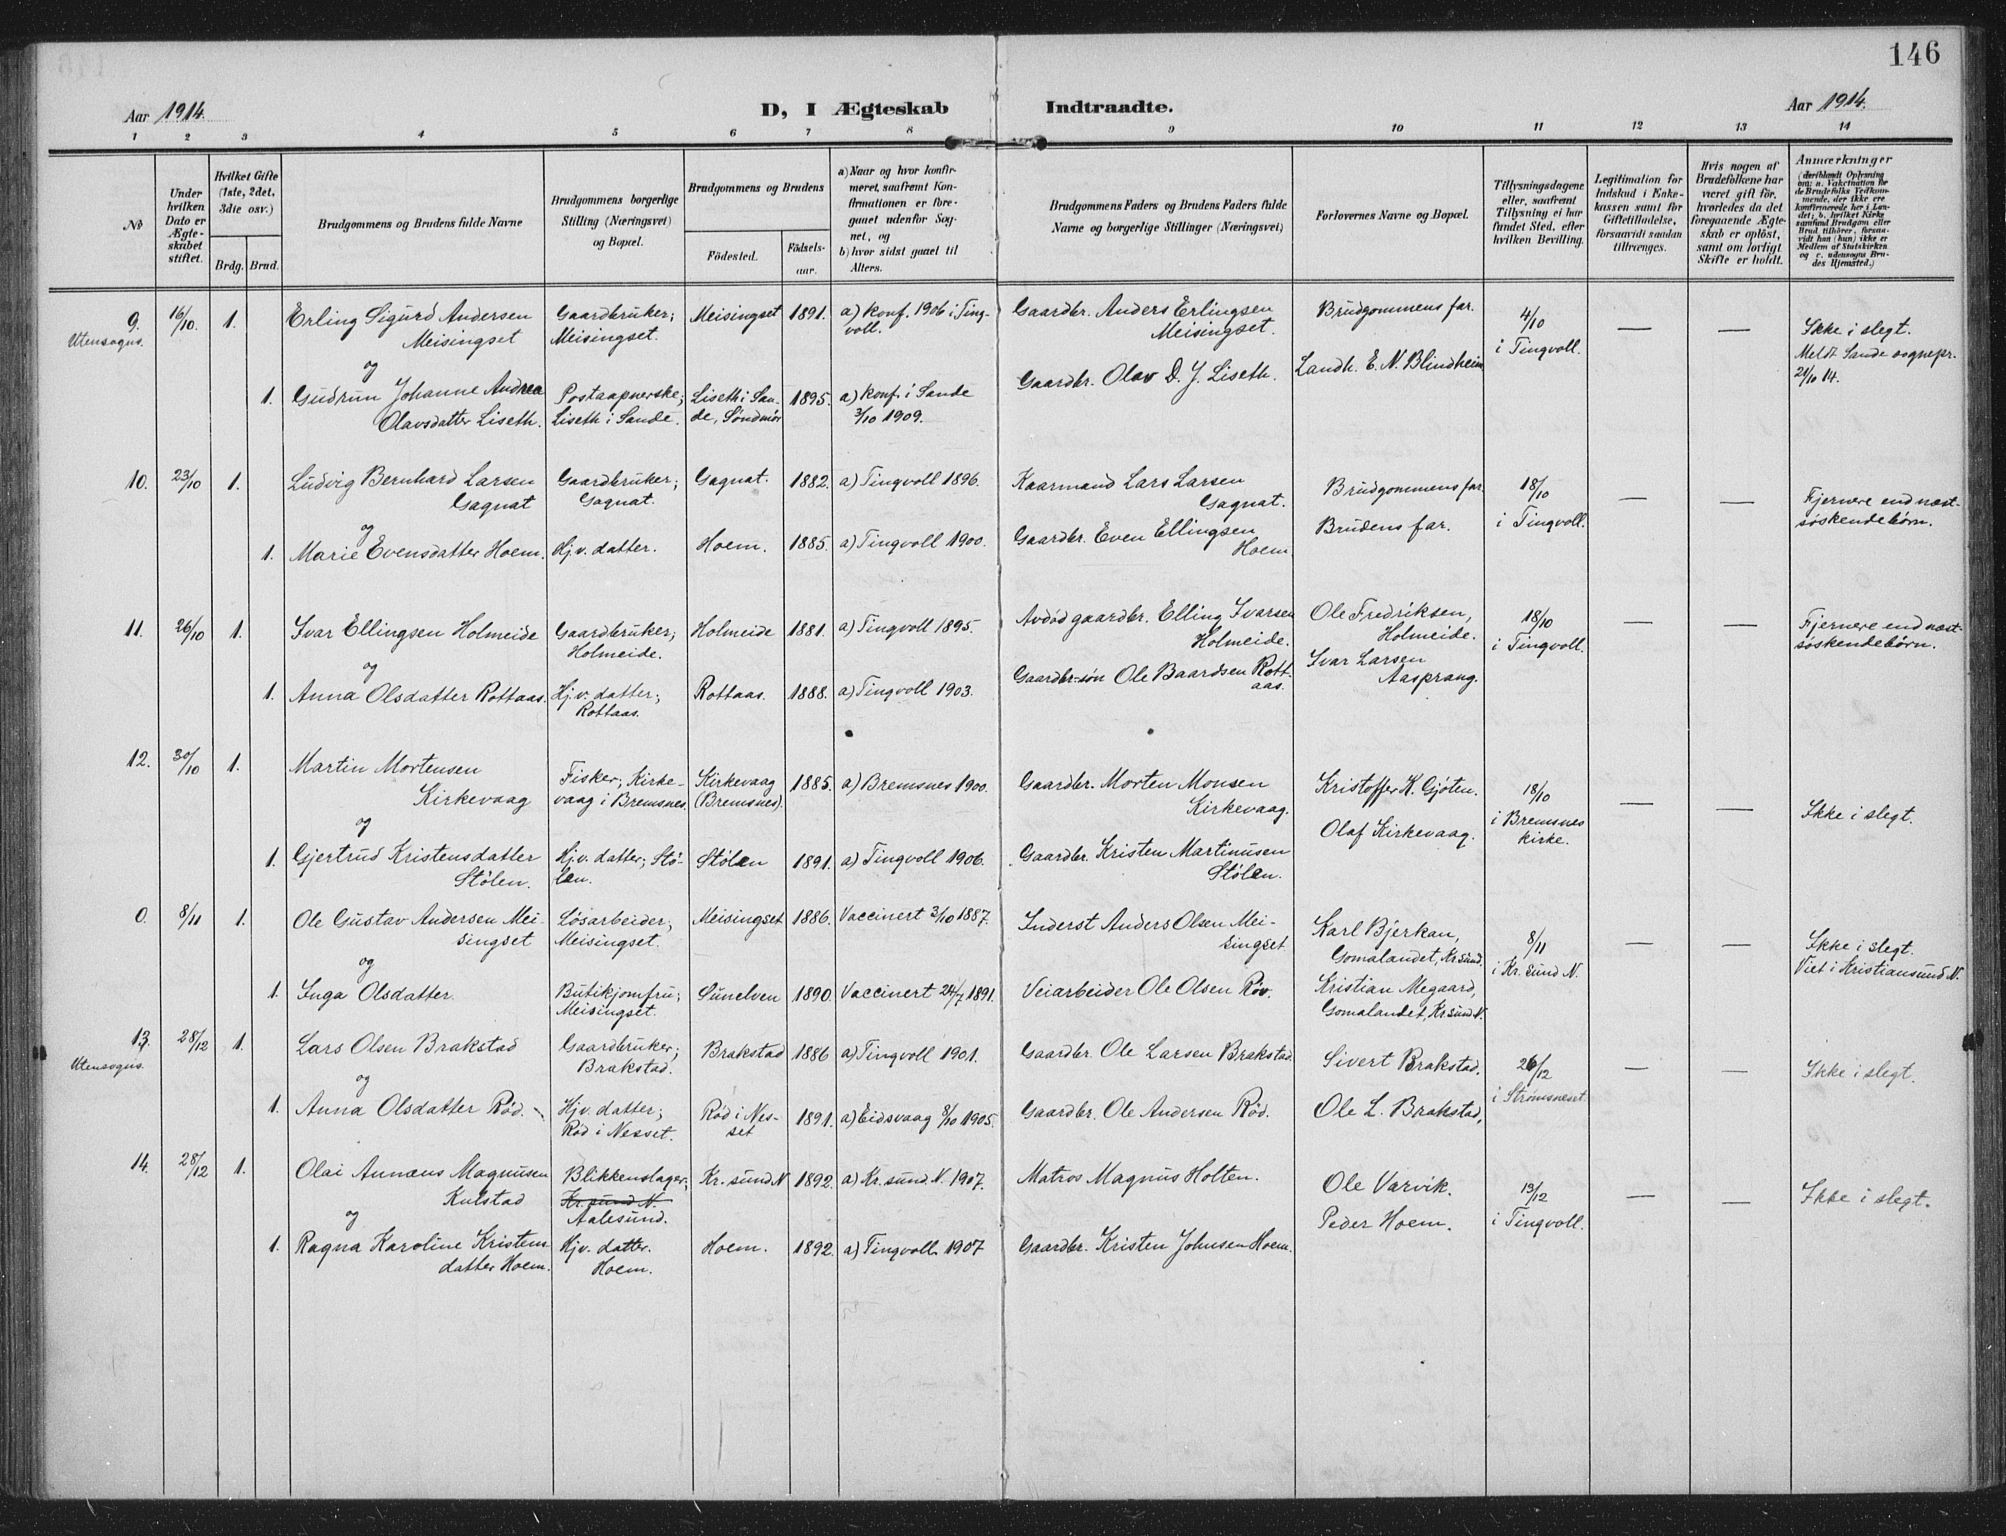 146
Aar 1914.
D, I Ægteskab Indtraadte.
Aar 1914.
1 2 3 4 5 6 7 8 9 10 11 12 13 14
No
Under hvilken Dato er Ægteskabet stiftet.
Hvilket Gifte (1ste, 2det, 3die osv.)
Brdg. Brud.
Brudgommens og Brudens fulde Navne
Brudgommens borgerlige Stilling (Næringsvei) og Bopæl.
Brudgommens og Brudens
Fødested.
Fødsels-aar.
a) Naar og hvor konfir-
meret, saafremt Kon-
firmationen er fore-
gaaet udenfor Sog-
net, og
b) hvor sidst gaaet til
Alters.
Brudgommens Faders og Brudens Faders fulde
Navne og borgerlige Stillinger (Næringsvei)
Forlovernes Navne og Bopæl.
Tillysningsdagene
eller, saafremt
Tillysning ei har
fundet Sted, efter
hvilken Bevilling.
Legitimation for
Indskud i Enke-
kassen samt for
Giftetilladelse,
forsaavidt saadan
tiltrænges.
Hvis nogen af
Brudefolkene har
været gift før,
hvorledes da det
foregaaende Ægte-
skab er opløst,
samt om lovligt
Skifte er holdt.
Anmærkninger
(deriblandt Oplysning
om: a. Vakcination for
de Brudefolks Vedkom-
mende, der ikke ere
konfirmerede her i Lan-
det; b. hvilket Kirke-
samfund Brudgom eller
Brud tilhører, forsaa-
vidt han (hun) ikke er
Medlem af Statskirken
og c. udensogns Bru-
des Hjemsted.)
9. 16/10. 1. Erling Sigurd Andersen Gaardbruker; Meisingset 1891. a) konf. 1906 i Ting- Gaardbr. Anders Erlingsen Brudgommens far. 4/10 — — Ikke i slegt.
Utensogns. Meisingset Meisingset. voll. Meisingset. i Tingvoll. Meldt Sande sognepr.
og Landh. E. N. Blindheim 21/10 14.
1. Gudrun Johanne Andrea Postaapnerske; Liseth i San- 1895. a) konf. i Sande Gaardbr. Olav D. J. Liseth.
Olavsdatter Liseth. Liseth i Sande. de, Søndmør 3/10 1909.
10. 23/10 1. Ludvig Bernhard Larsen Gaardbruker; Gagnat. 1882. a) Tingvoll 1896. Kaarmand Lars Larsen Brudgommens far. 18/10 — — Fjernere end næst-
Gagnat Gagnat. Gagnat. i Tingvoll. søskendebørn.
og
1. Marie Evensdatter Hoem. Hjv. datter. Hoem. 1885. a) Tingvoll 1900. Gaardbr. Even Ellingsen Brudens far.
Hoem
11. 26/10 1. Ivar Ellingsen Holmeide Gaardbruker; Holmeide 1881. a) Tingvoll 1895. Avdød gaardbr. Elling Ivarsen Ole Fredriksen, 18/10 — — Fjernere end næst-
Holmeide. Holmeide. Holmeide. i Tingvoll. søskendebørn.
og Ivar Larsen
1. Anna Olsdatter Rottaas. Hjv. datter; Rottaas. 1888. a) Tingvoll 1903. Gaardbr.-søn Ole Baardsen Rott- Aasprang.
Rottaas. aas.
12. 30/10 1. Martin Mortensen Fisker; Kirke- Kirkevaag 1885. a) Bremsnes 1900. Gaardbr. Morten Monsen Kristoffer K. Gjøten. 18/10 — — Ikke i slegt.
Kirkevaag vaag i Bremsnes. (Bremsnes). Kirkevaag. i Bremsnes
og Olaf Kirkevaag. kirke.
1. Gjertrud Kristensdatter Hjv. datter; Stø- Stølen 1891. a) Tingvoll 1906. Gaardbr. Kristen Martinusen
Stølen. len. Stølen.
0. 8/11 1. Ole Gustav Andersen Mei- Løsarbeider; Meisingset 1886. Vaccinert 3/10 1887. Inderst Anders Olsen Mei- Karl Bjerkan, 8/11 — — Ikke i slegt.
singset Meisingset. singset Gomalandet, Kr.sund. i Kr.sund N. Viet i Kristiansund N.
og
1. Inga Olsdatter. Butikjomfru; Sunelven 1890. Vaccinert 24/7 1891. Veiarbeider Ole Olsen Røv. Kristian Megaard,
Meisingset. Gomalandet, Kr.sund N.
13. 28/12 1. Lars Olsen Brakstad Gaardbruker; Brakstad 1886 a) Tingvoll 1901. Gaardbr. Ole Larsen Brakstad. Sivert Brakstad. 26/12 — — Ikke i slegt.
Utensogns. Brakstad. i Strømsneset.
og
1. Anna Olsdatter Rød. Hjv. datter; Rød i Nes- 1891. a) Eidsvaag 8/10 1905. Gaardbr. Ole Andersen Rød. Ole L. Brakstad,
Rød i Nesset. set
14. 28/12 1. Olai Annæus Magnusen Blikkenslager, Kr.sund N 1892. a) Kr.sund N. 1907. Matros Magnus Holten. Ole Varvik. 13/12 — — Ikke i slegt.
Kulstad Kr.sund N. i Tingvoll.
og Aalesund. Peder Hoem.
1. Ragna Karoline Kristens- Hjv. datter. Hoem. 1892. a) Tingvoll. 1907 Gaardbr. Kristen Johnsen Hoem.
datter Hoem. Hoem.